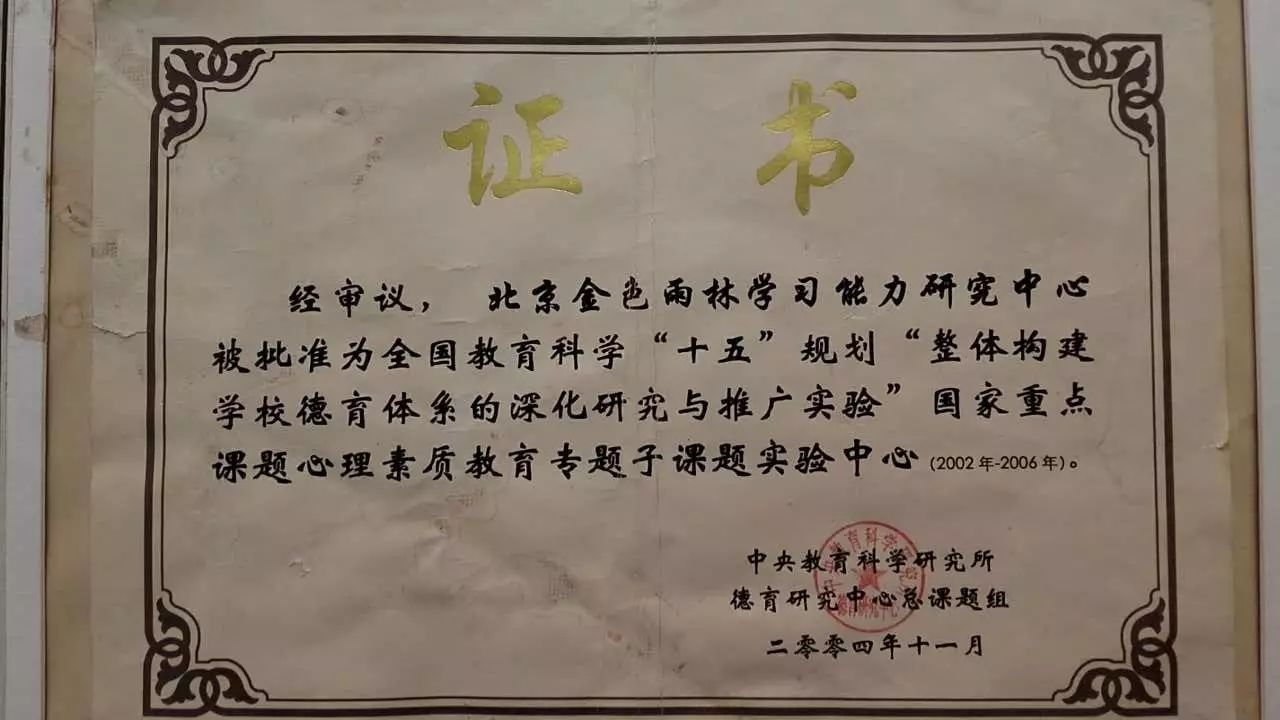 证 书
经审议， 北京金色雨林学习能力研究中心
被批准为全国教育科学“十五”规划“整体构建
学校德育体系的深化研究与推广实验”国家重点
课题心理素质教育专题子课题实验中心(2002年-2006年)。
中央教育科学研究所
德育研究中心总课题组
二零零四年十一月